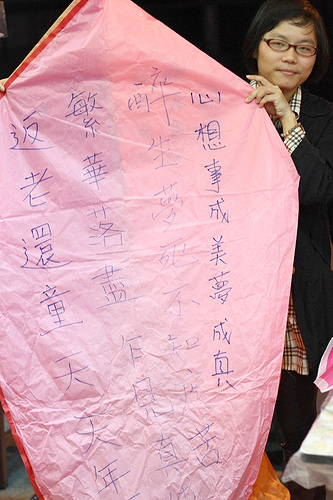 心想事成美夢成真
醉生夢死不知
繁華落盡乍見真
返老還童天天年